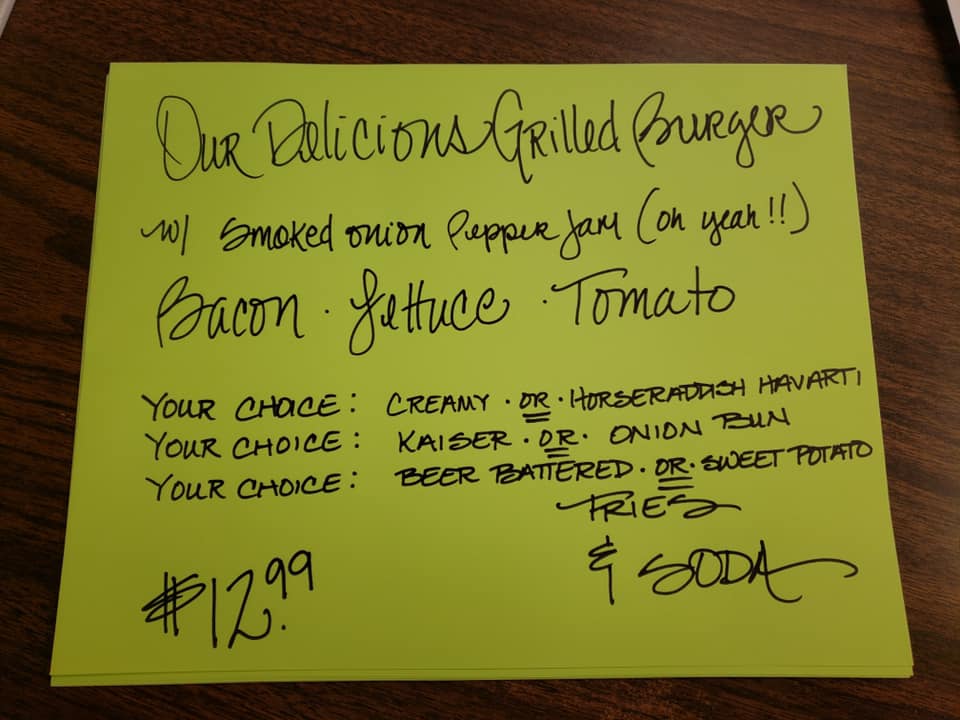 Our Delicious Grilled Burger
w/ smoked onion Pepper Jam (oh yeah!!)
Bacon · Lettuce · Tomato
YOUR CHOICE: CREAMY · OR · HORSERADDISH HAVARTI
YOUR CHOICE: KAISER · OR · ONION BUN
YOUR CHOICE: BEER BATTERED · OR · SWEET POTATO
FRIES
& SODA
$12.99